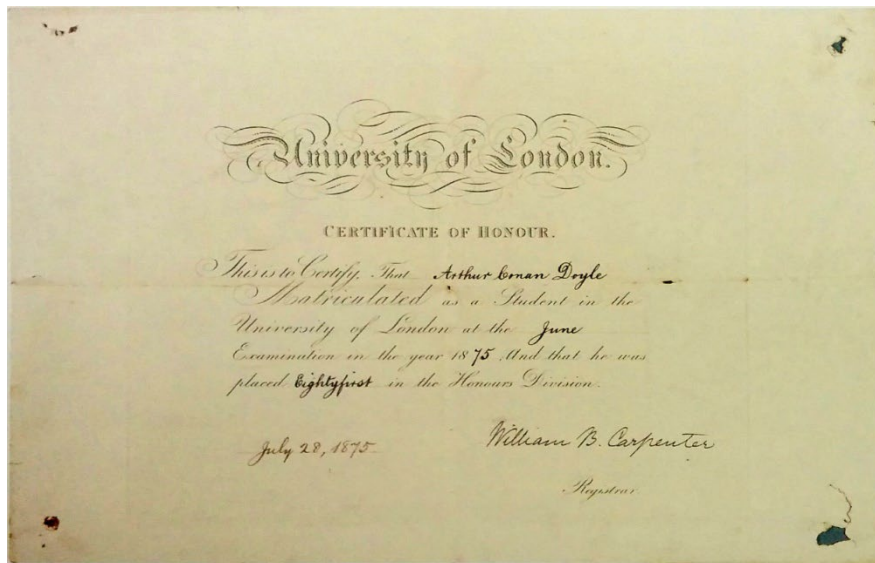 University of London.
CERTIFICATE OF HONOUR.
This is to Certify, That Arthur Conan Doyle
Matriculated as a Student in the
University of London at the June
Examination in the year 1875, And that he was
placed Eightyfirst in the Honours Division.
July 28, 1875
William B. Carpenter
Registrar